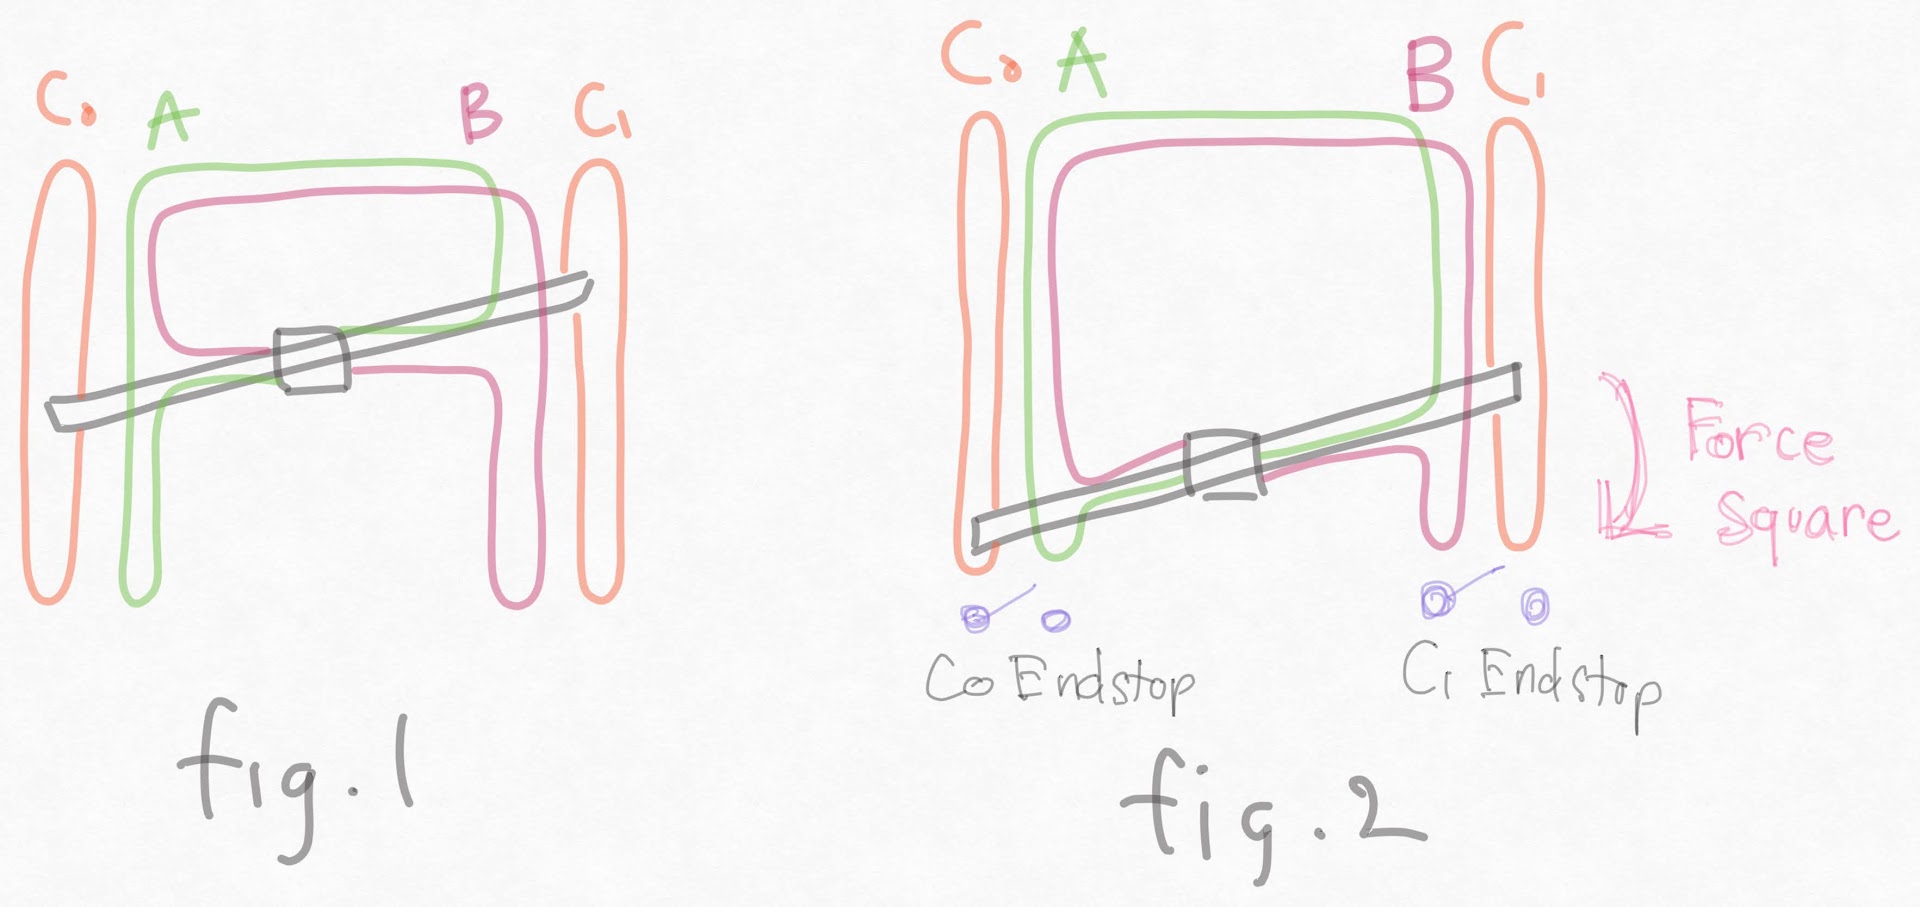 C0 A B C1
C0 A B C1
Force
Square
C0 Endstop
C1 Endstop
fig.1
fig.2